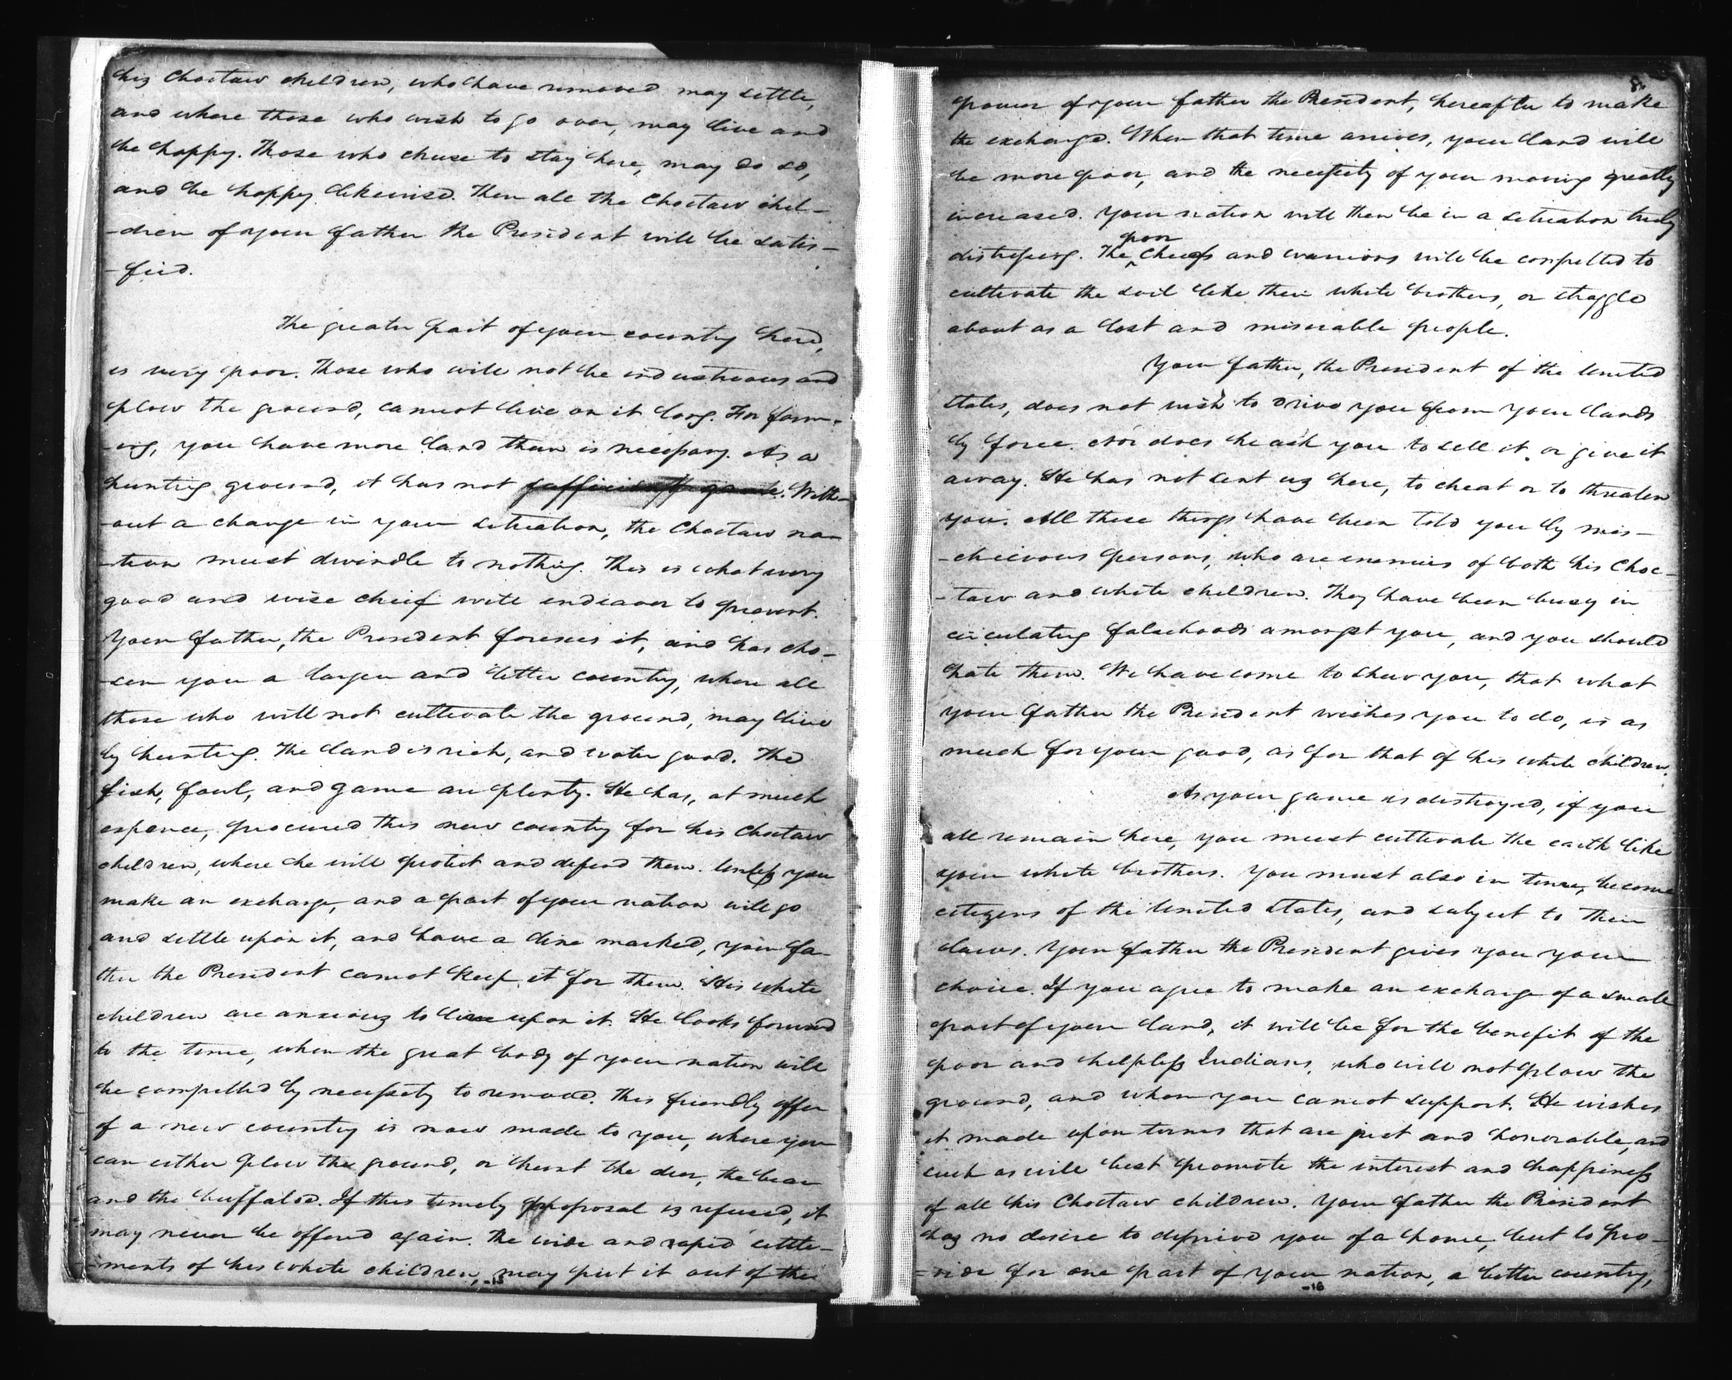 his Choctaw children, who have removed may settle,
and where those who wish to go over, may live and
be happy. Those who chuse to stay here, may do so,
and be happy likewise. Then all the Choctaw chil-
-dren of your father the President will be satis-
-fied.
The greater part of your country here,
is very poor. Those who will not be industrious and
plow the ground, cannot live on it long. For farm-
-ing, you have more land than is necessary. As a
hunting ground, it has not sufficient game. With-
-out a change in your situation, the Choctaw na-
-tion must dwindle to nothing. This is what every
good and wise chief will endeavor to prevent.
Your father, the President foresees it, and has cho-
-sen you a larger and better country, where all
those who will not cultivate the ground, may live
by hunting. The land is rich, and water good. The
fish, fowl, and game are plenty. He has, at much
expence, procured this new country for his Choctaw
children, where he will protect and defend them. Unless you
make an exchange, and a part of your nation will go
and settle upon it, and have a line marked, your fa-
ther the President cannot keep it for them. His white
children are anxious to live upon it. He looks forward
to the time, when the great body of your nation will
be compelled by necessity to remove. This friendly offer
of a new country is now made to you, where you
can either plow the ground, or hunt the deer, the bear
and the buffaloe. If this timely proposal is refused, it
may never be offered again. The wide and rapid settle-
-ments of his white children, may put it out of the
-15
8.
power of your father the President, hereafter to make
the exchange. When that time arrives, your land will
be more poor, and the necessity of your moving greatly
increased. Your nation will then be in a situation truly
poor
distressing. The ^ Chiefs and warriors will be compelled to
cultivate the soil like their white brothers, or straggle
about as a lost and miserable people.
Your father, the President of the United
States, does not wish to drive you from your lands
by force. Nor does he ask you to sell it, or give it
away. He has not sent us here, to cheat or to threaten
you. All these things have been told you by mis-
-chievous persons, who are enemies of both his Choc-
-taw and white children. They have been busy in
circulating falsehoods amongst you, and you should
hate them. We have come to shew you, that what
your father the President wishes you to do, is as
much for your good, as for that of his white children.
As your game is destroyed, if you
all remain here, you must cultivate the earth like
your white brothers. You must also in time, become
citizens of the United States, and subject to their
laws. Your father the President gives you your
choice. If you agree to make an exchange of a small
part of your land, it will be for the benefit of the
poor and helpless Indians, who will not plow the
ground, and whom you cannot support. He wishes
it made upon terms that are just and honorable, and
such as will best promote the interest and happiness
of all his Choctaw children. Your father the President
has no desire to deprive you of a home, but to pro-
-vide for one part of your nation, a better country,
-16